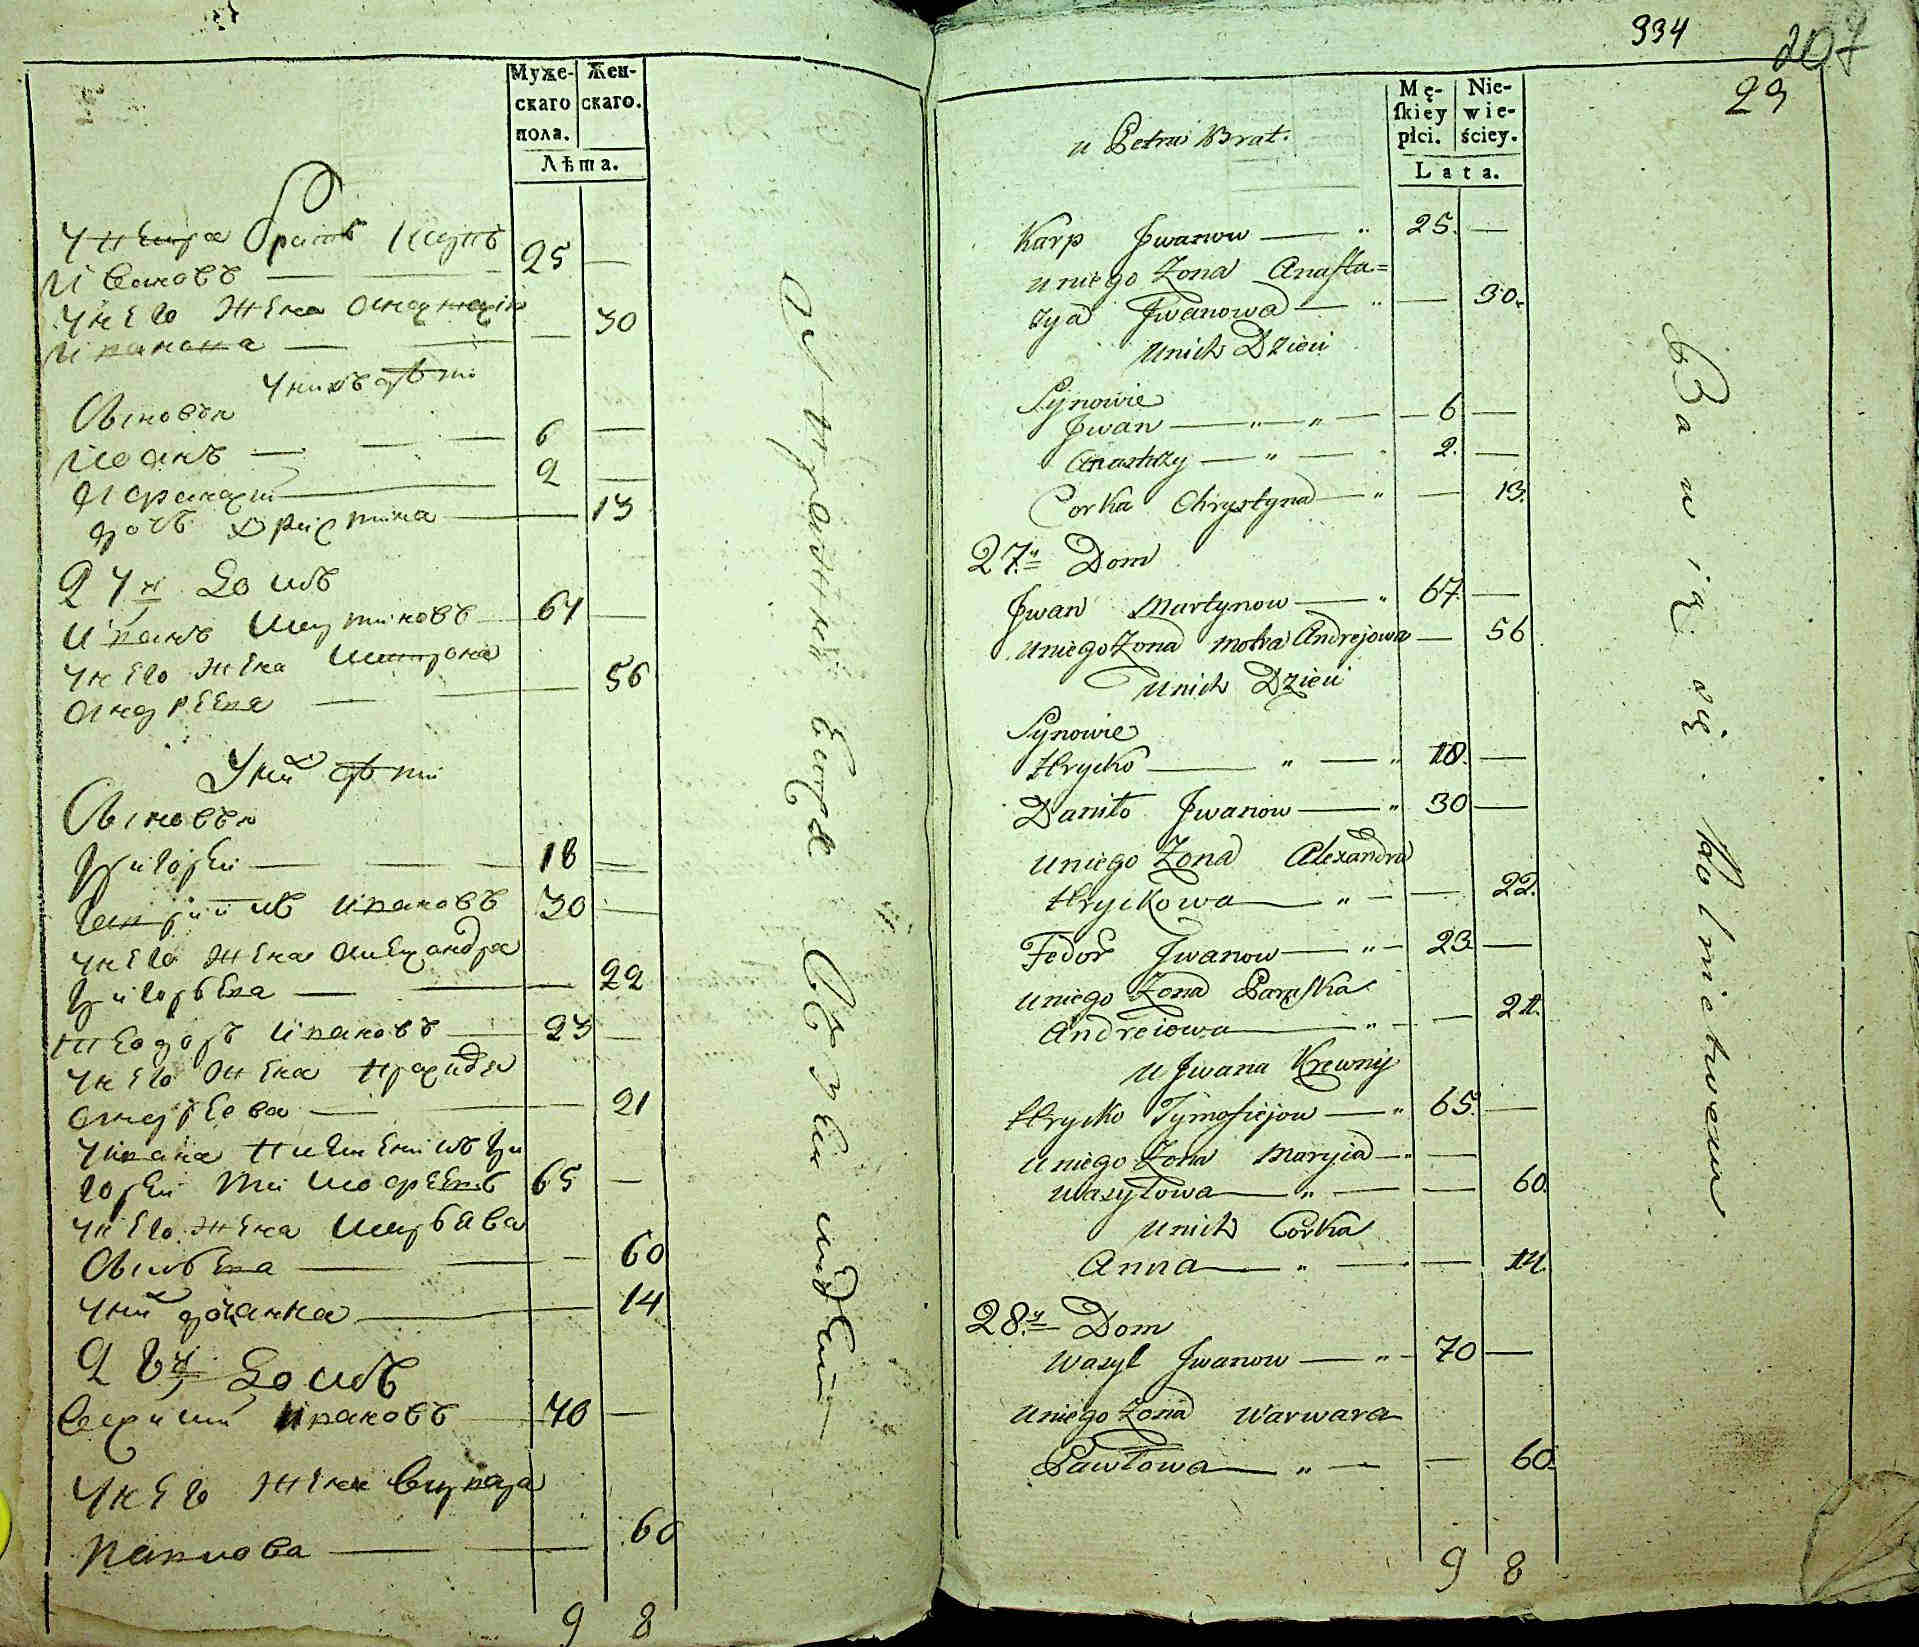 Муже-
скаго
пола.
Жен-
скаго.
Лѣта.
У Петра братъ Карпъ
Ивановъ — 25 —
У него жена Анастасія
Иванова — — 30
У нихъ дѣти
Сыновья
Иванъ — 6 —
Афанасій — 2 —
дочь Христина — 13
27й Домъ
Иванъ Мартиновъ — 67 —
У него жена Матрона
Андреева — 56
У них дѣти
Сыновья
Григорей — 18 —
Данріилъ Ивановъ 30 —
У него жена Александра
Григорьева — — 22
Феодоръ Ивановъ — 23 —
У него жена
Андреева — — 21
Ивана
горей Тимофеевъ 65 —
У него жена
— — 60
У них дочь Анна — 14
28й Домъ
Василій Ивановъ 70 —
У него жена Варвара
Павлова — — 60
9 8
Упражняются въ
334
207
29
Mę-
skiey
płci.
Nie-
wie-
ściey.
Lata.
u Petra Brat.
Karp Jwanow — " 25. —
u niego Zona Anasta=
zya Jwanowa — " — 30.
u nich Dzieci
Synowie
Jwan — " — " — 6 —
Anastazy — " — 2. —
Corka Chrystyna — " — 13.
27.y Dom
Jwan Martynow — " 67. —
u niego Zona Motra Andrejowa — 56
u nich Dzieci
Synowie
Hrycko — " — " 18. —
Daniło Jwanow — " 30 —
u niego Zona Alexandra
Hryckowa — " — — 22.
Fedor Jwanow — " — 23. —
u niego Zona Paraska
Andreiowa — " — — 21.
u Jwana Krewny
Hrycko Tymofiejow — " 65. —
u niego Zona Maryia — " —
Wasylowa — " — — 60.
u nich Corka
Anna — " — — 14.
28.y Dom
Wasyl Jwanow — " — 70 —
u niego Zona Warwara
Pawłowa — " — — 60.
9 8
Bawią się Rolnictwem